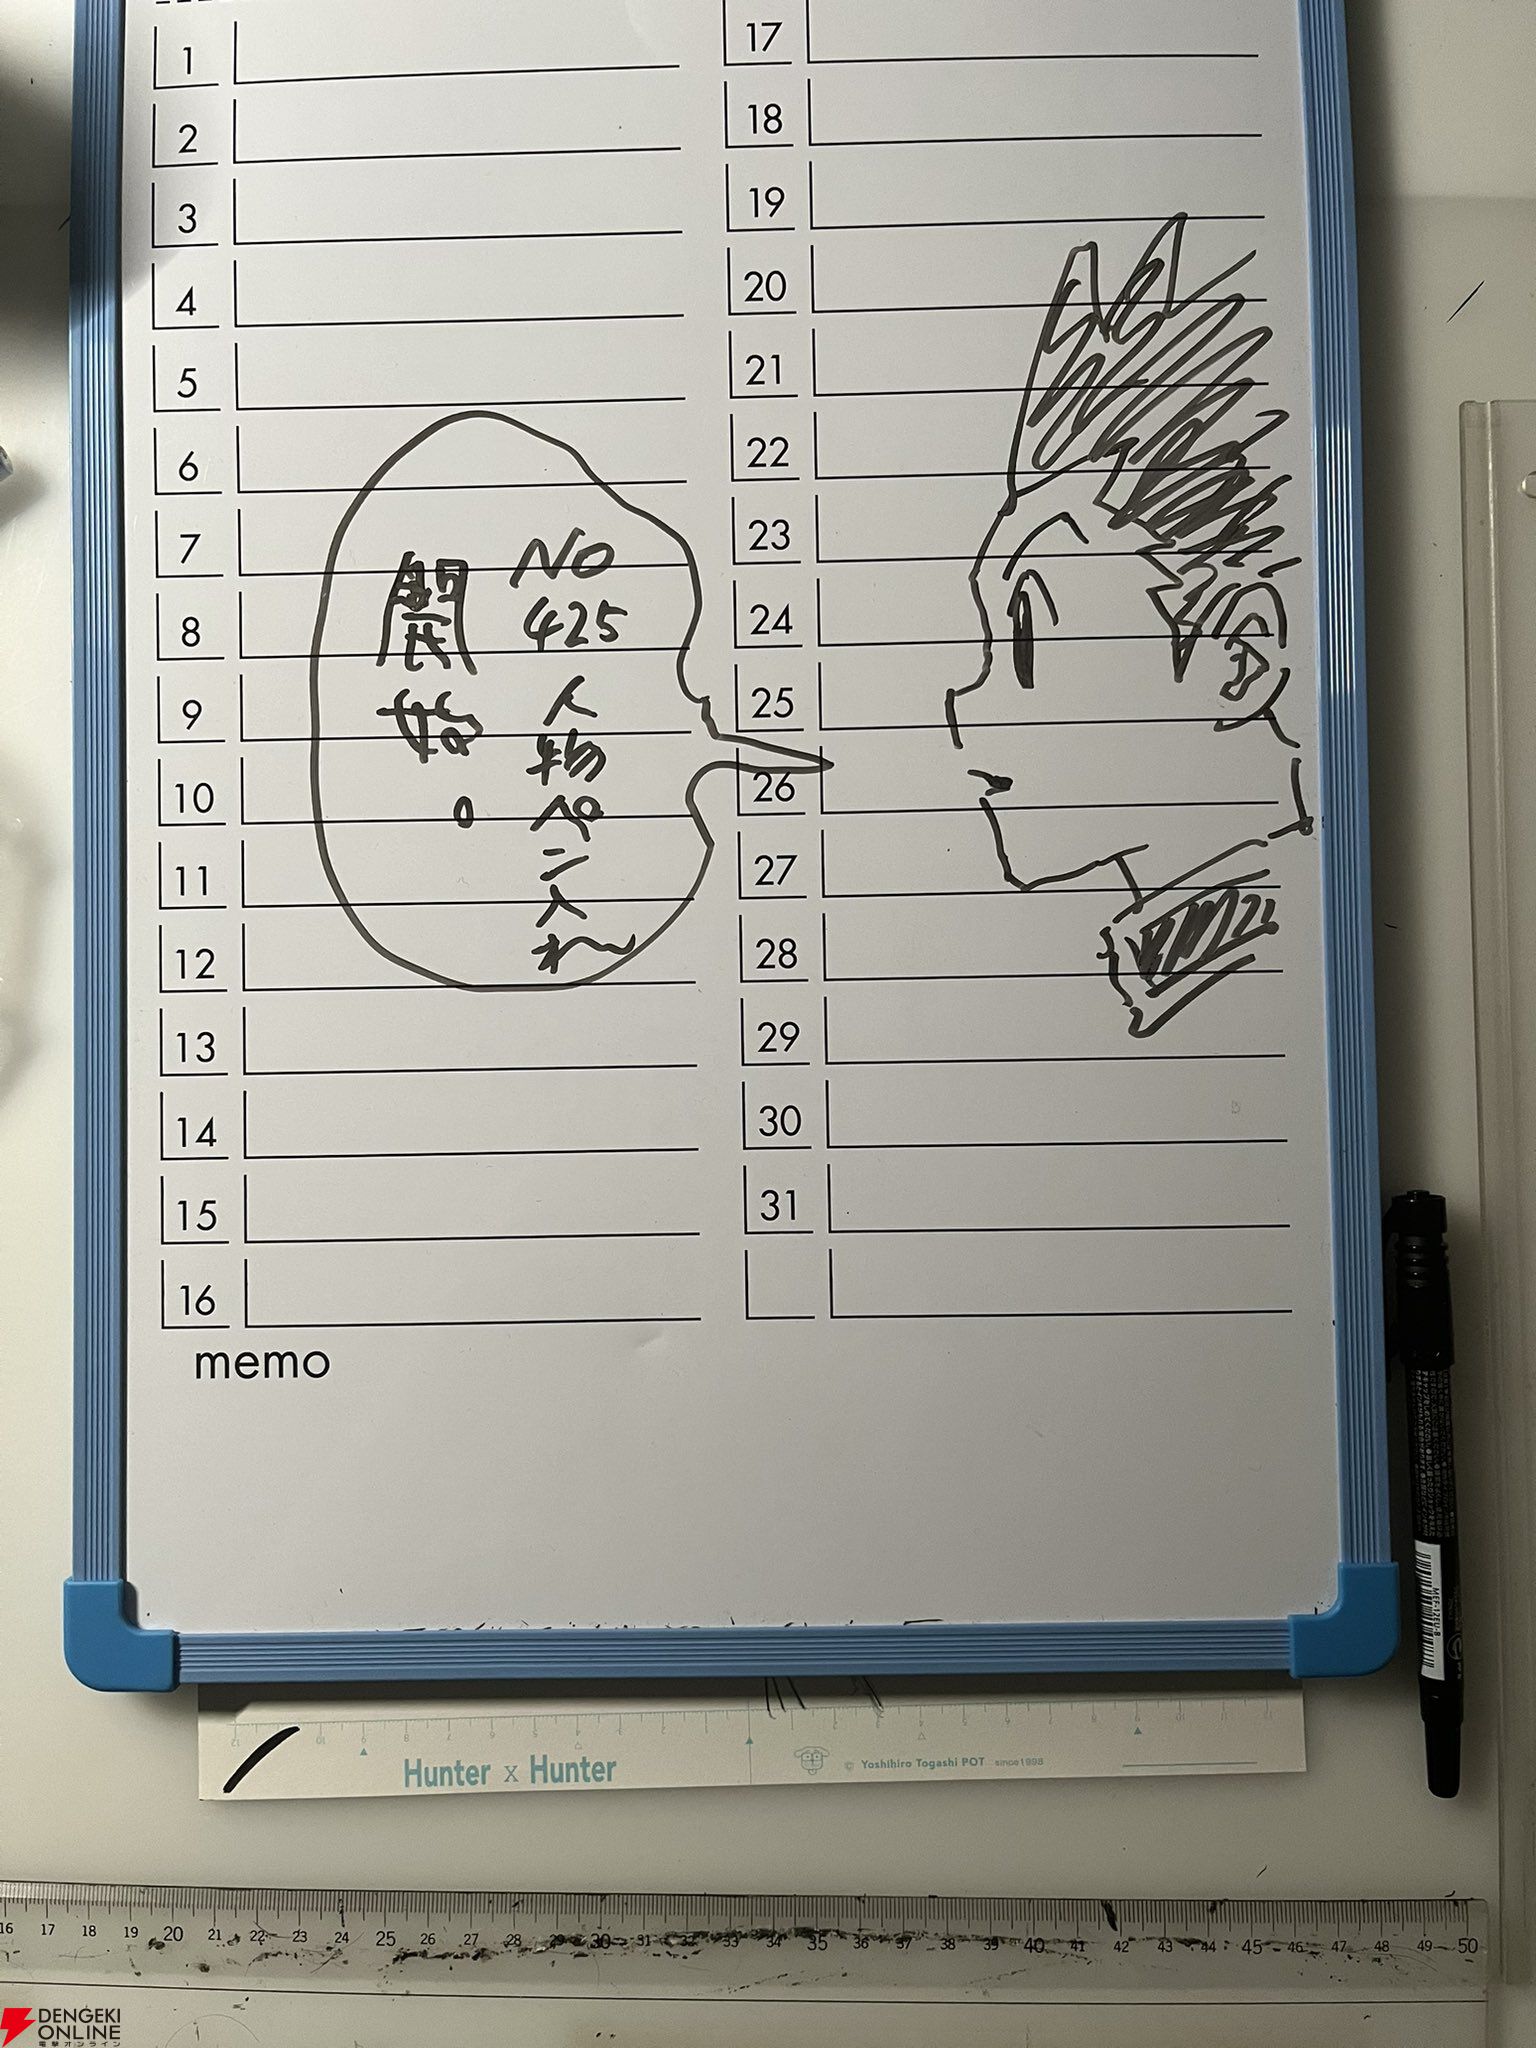 1
2
3
4
5
6
7
8
9
10
11
12
13
14
15
16
17
18
19
20
21
22
23
24
25
26
27
28
29
30
31
NO
425
人物ペン入れ
開始。
memo
Hunter x Hunter
© Yoshihiro Togashi POT since1998
MEF-12EU-B
16 17 18 19 20 21 22 23 24 25 26 27 28 29 30 31 32 33 34 35 36 37 38 39 40 41 42 43 44 45 46 47 48 49 50
DENGEKI
ONLINE
電撃オンライン